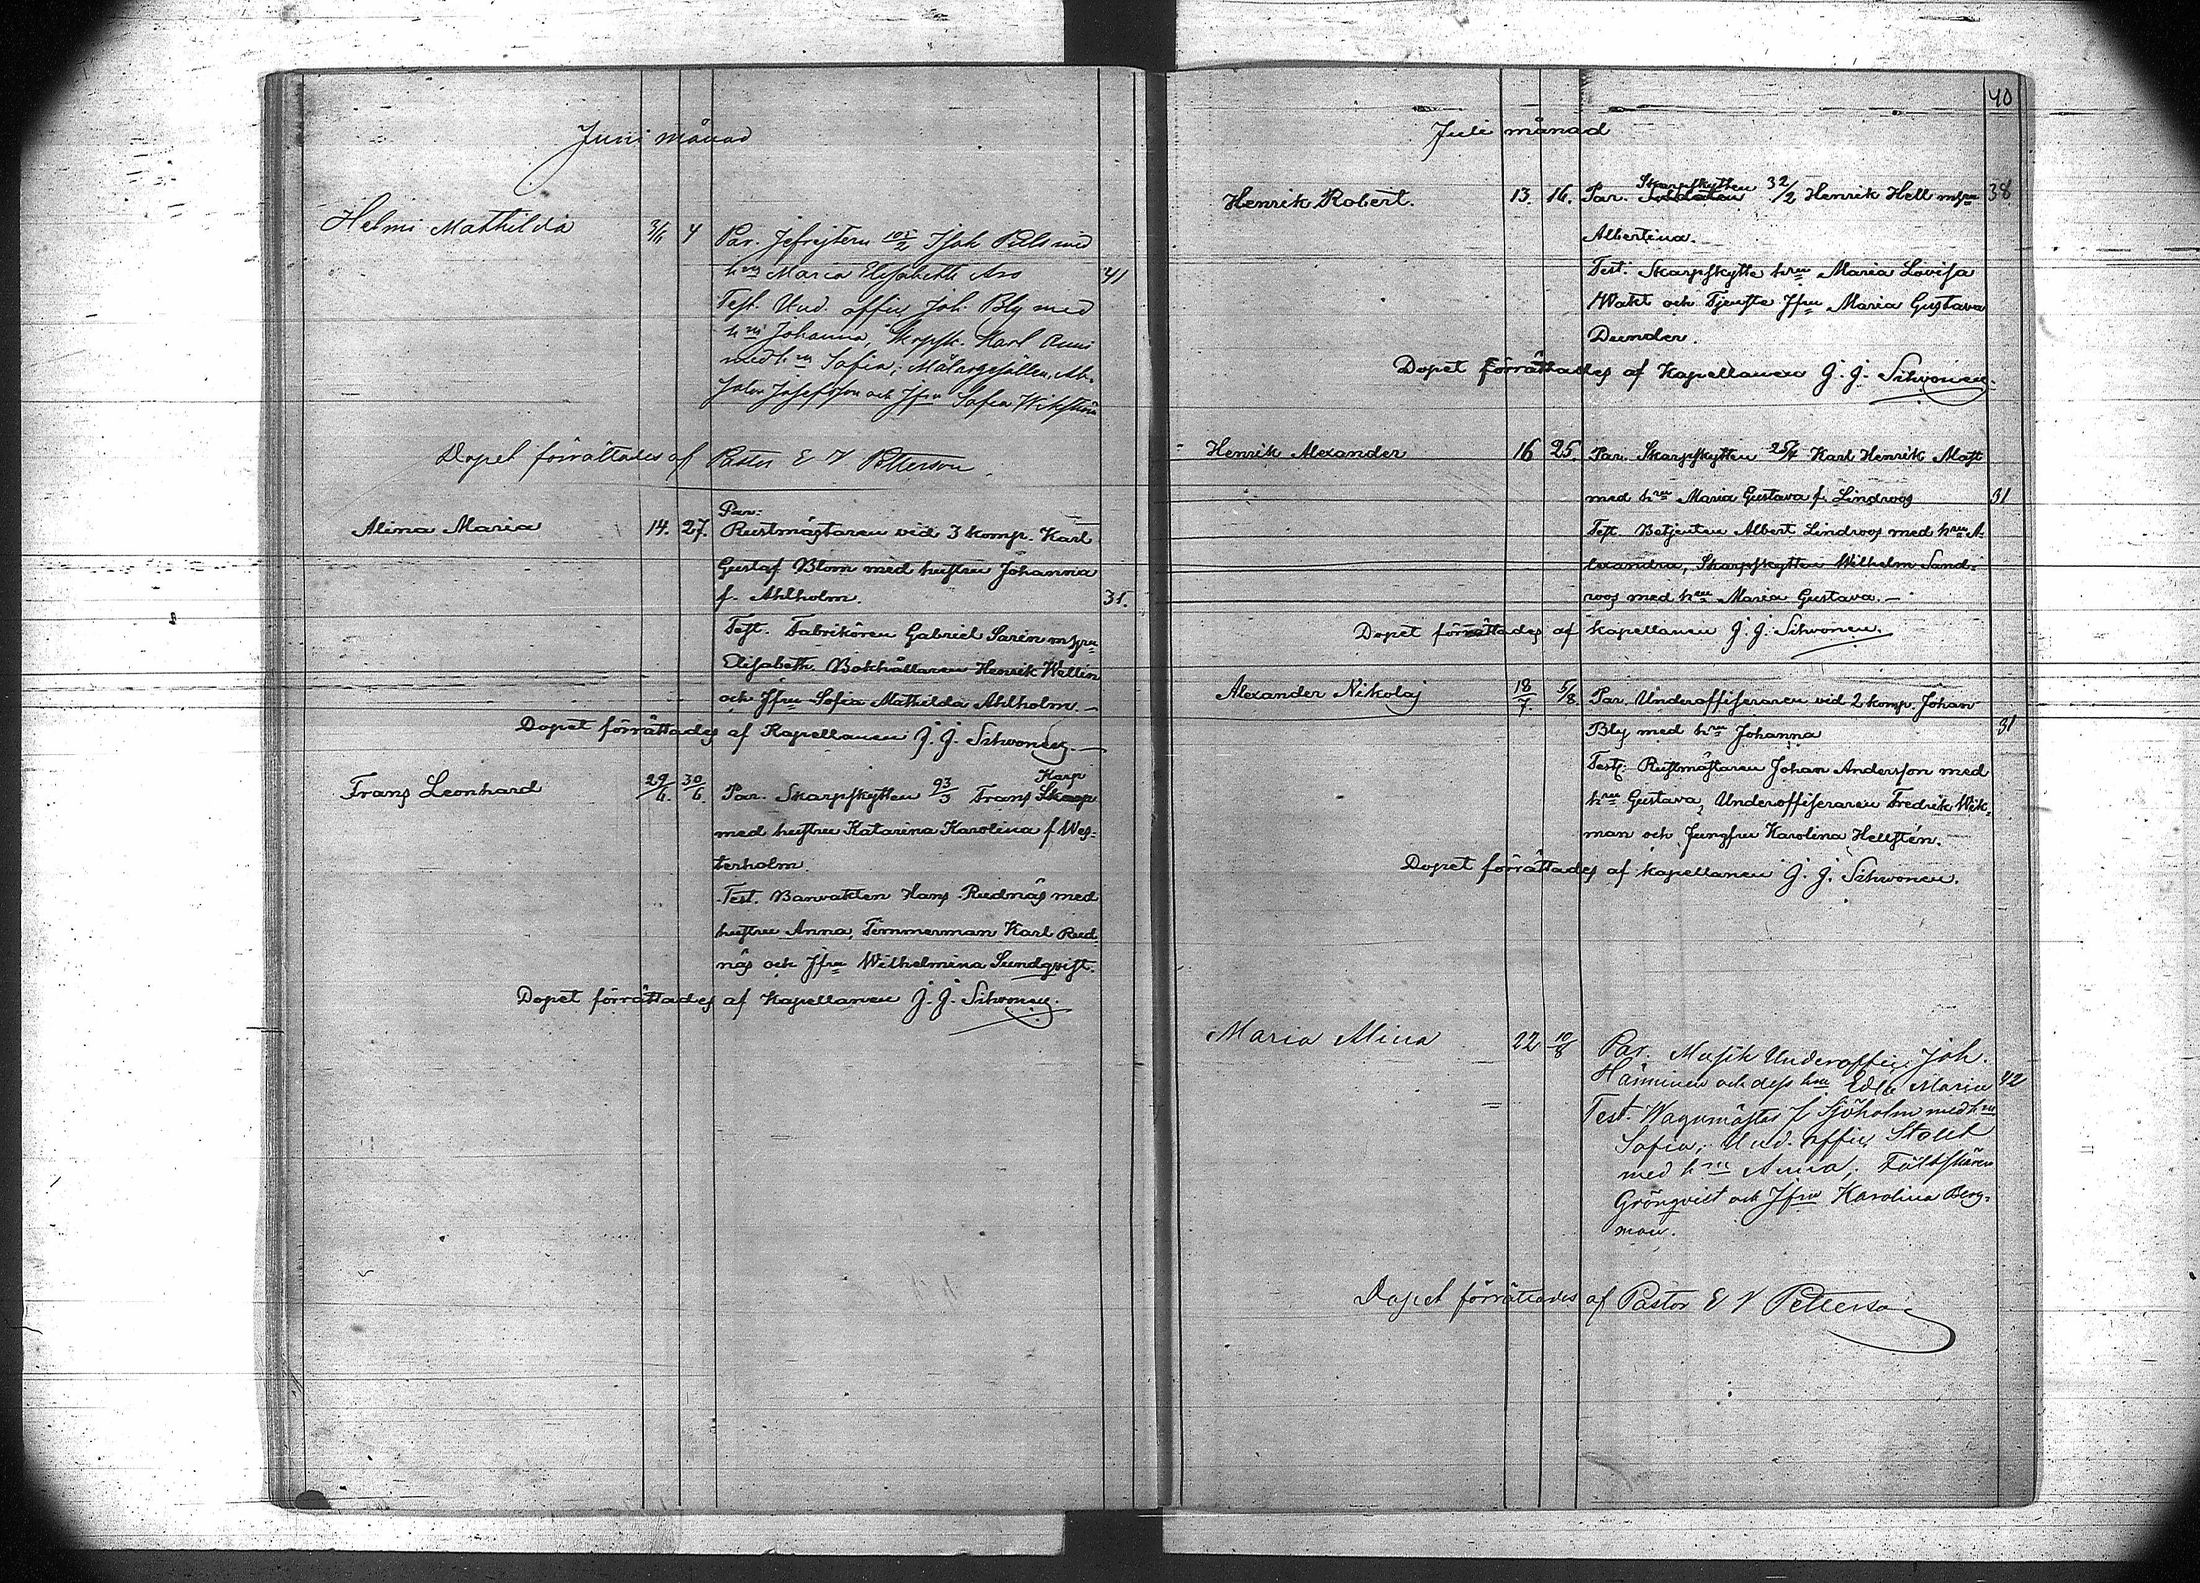 Juni månad
Helmi Mathilda 3/6 4 Par. Jefrejtern 105/2 Isak Puls med
hru Maria Elisabeth Aro 41
Test. Und. offic Joh. Bly med
hru Johanna, Skrpsk. Karl Quus
med hru Sofia, Målargesällen Ab.
Jakob Josefsson och Jfru Sofia Wikström
Dopet förrättades af Pastor E V Petterson.
Par:
Alina Maria 14. 27. Rustmästaren vid 3 komp. Karl
Gustaf Blom med hustru Johanna
f. Ahlholm. 31.
Test. Fabrikören Gabriel Sarin m hru
Elisabeth Bokhållaren Henrik Wellin
och Jfru Sofia Mathilda Ahlholm.
Dopet förrättades af Kapellanen J. J. Sihvonen.
Frans Leonhard 29/6. 30/6. Par. Skarpskytten 93/3 Frans Skarp Karp
med hustru Katarina Karolina f Wes-
terholm.
Test. Banvakten Hans Rudnäs med
hustru Anna, Timmerman Karl Rud-
näs och Jfru Wilhelmina Sundqvist.
Dopet förrättades af Kapellanen J. J. Sihvonen.
40
Juli månad
Henrik Robert. 13. 16. Par. Soldaten Skarpskytten 32/2 Henrik Hell m hru 38
Albertina.
Test. Skarpskytte hru Maria Lovisa
Wakt och Tjenste Jfru Maria Gustava
Dunder.
Dopet förrättades af Kapellanen J. J. Sihvonen.
Henrik Alexander 16 25. Par. Skarpskytten 25/4 Karl Henrik Mast
med hru Maria Gustava f. Lindroos 31
Test. Betjenten Albert Lindroos med hru A-
lexandra, Skarpskytten Wilhelm Sand-
roos med hru Maria Gustava.
Dopet förrättades af kapellanen J. J. Sihvonen.
Alexander Nikolaj 18/7 5/8. Par. Underofficeraren vid 2 komp. Johan
Bly med hru Johanna 31
Test: Rustmästaren Johan Andersson med
hru Gustava, Underofficeraren Fredrik Wik-
man och Jungfru Karolina Hellstén.
Dopet förrättades af kapellanen J. J. Sihvonen.
Maria Alina 22 10/8 Par. Musik Underoffic. Joh.
Hänninen och dess hru Edla Maria 42
Test. Wagnmäster f Sjöholm med hru
Sofia; Und. offic Stolt
med hru Anna; Fältskären
Grönqvist och Jfru Karolina Berg-
man.
Dopet förrättades af Pastor E V Petterson